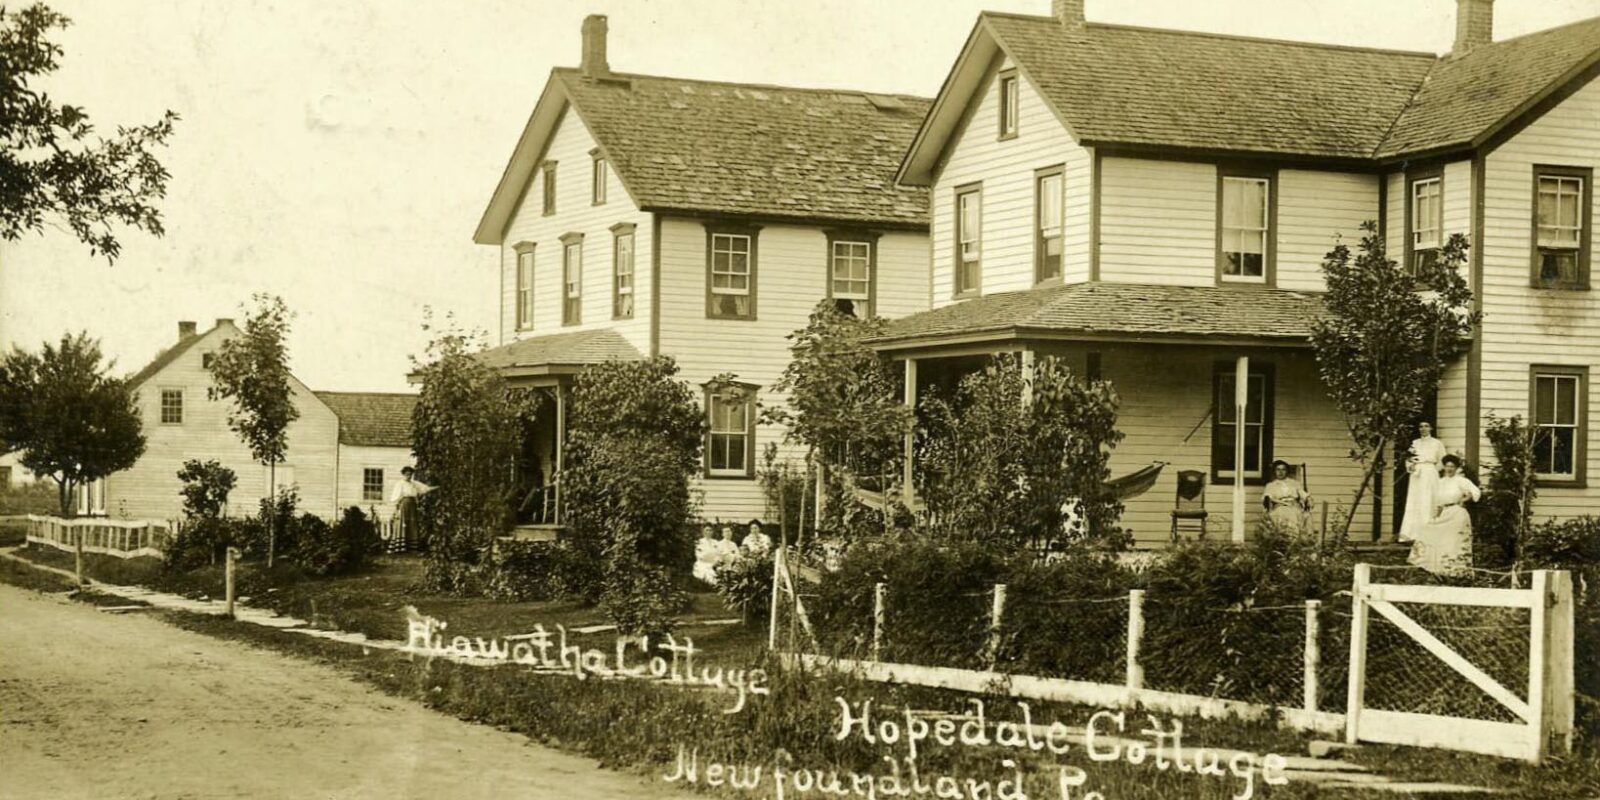 Hiawatha Cottage
Hopedale Cottage
Newfoundland Pa